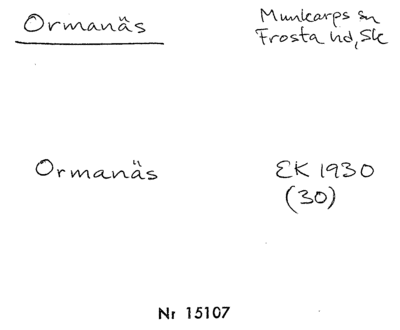 Ormanäs
Munkarps sn
Frosta hd, Sk
Ormanäs
EK 1930
(30)
Nr 15107